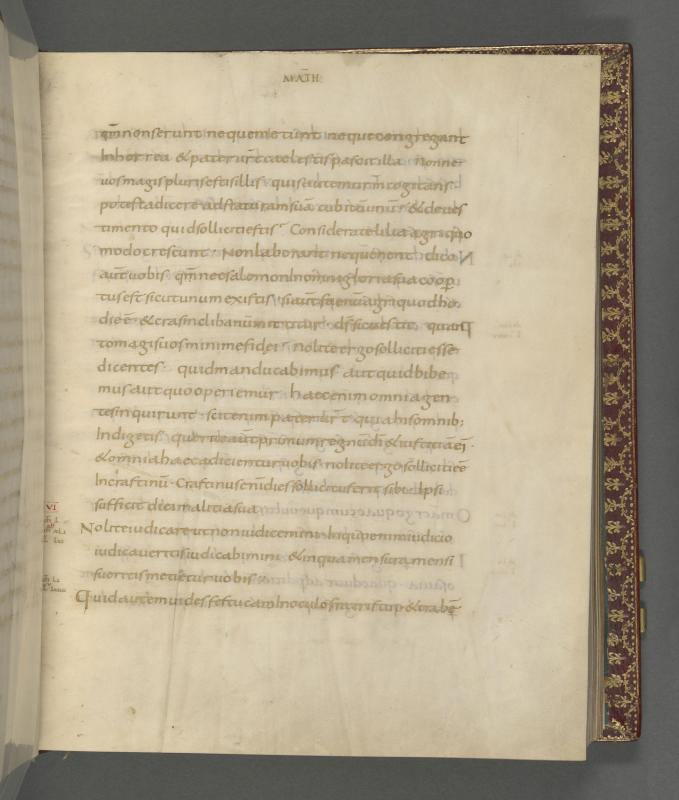 MATH
qm̄ non serunt neque metunt neque congregant
In horrea & pater ur̄ caelestis pascit illa Nonne
uos magis pluris estis illis quis autem urm̄ cogitans
potest adicere ad staturam suā cubitū unū & de ues
timento quid solliciti estis Considerate lilia agri quo
modo crescunt Non laborant neque nent dico
aut̄ uobis qm̄ nec salomon In omni gloria sua coop
tus est sicut unum ex istis si aut̄ faenū agri quod ho
die ē & cras In clibanum mittitur ds̄ sic uestit quan
to magis uos minime fidei nolite ergo solliciti esse
dicentes quid manducabimus aut quid bibe
mus aut quo operiemur haec enim omnia gen
tes inquirunt scit enim pater ur̄ quia his omnib;
Indigetis querite aut̄ primum regnū dī & iustitiā eī
& omnia haec adicientur uobis nolite ergo solliciti eē
In crastinū Crastinus enī dies sollicitus erit sibi Ipsi
sufficit diei malitia sua
VI
Nolite iudicare ut non iudicemini In quo enim iudicio
iudicaueritis iudicabimini & in qua mensura mensi
fueritis metietur uobis
Quid autem uides festucam In oculo fratris tui & trabē